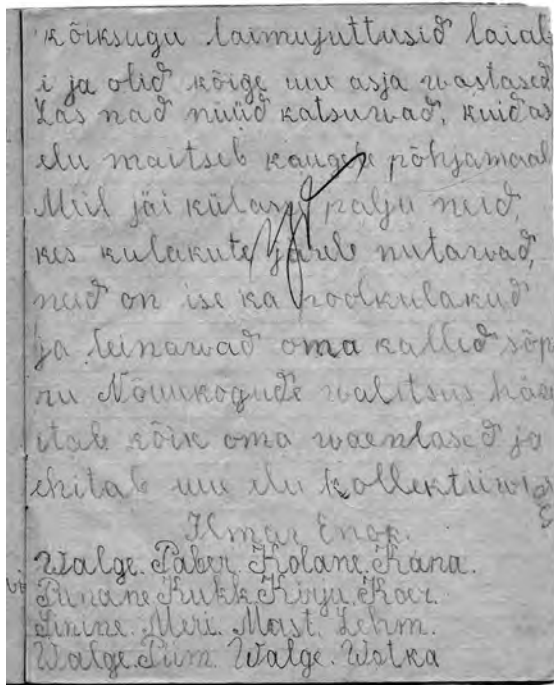 kõiksugu laimujuttusid laial
i ja olid kõige uue asja wastased
Las nad nüüd katsuwad, kuidas
elu maitseb kaugele põhjamaal
Meil jäi külasse palju neid,
kes kulakute järele nutawad,
neid on ise ka poolkulakud
ja leinawad oma kallid sõp
ru Nõuukogude walitsus häw
itab kõik oma waenlased ja
ehitab uue elu kollektiiwi
Ilmar Enok.
Walge. Paber. Kolane. Kana.
Punane Kukk Kirju. Koer.
Sinine. Meri. Mast. Lehm.
Walge. Piim. Walge. Watka